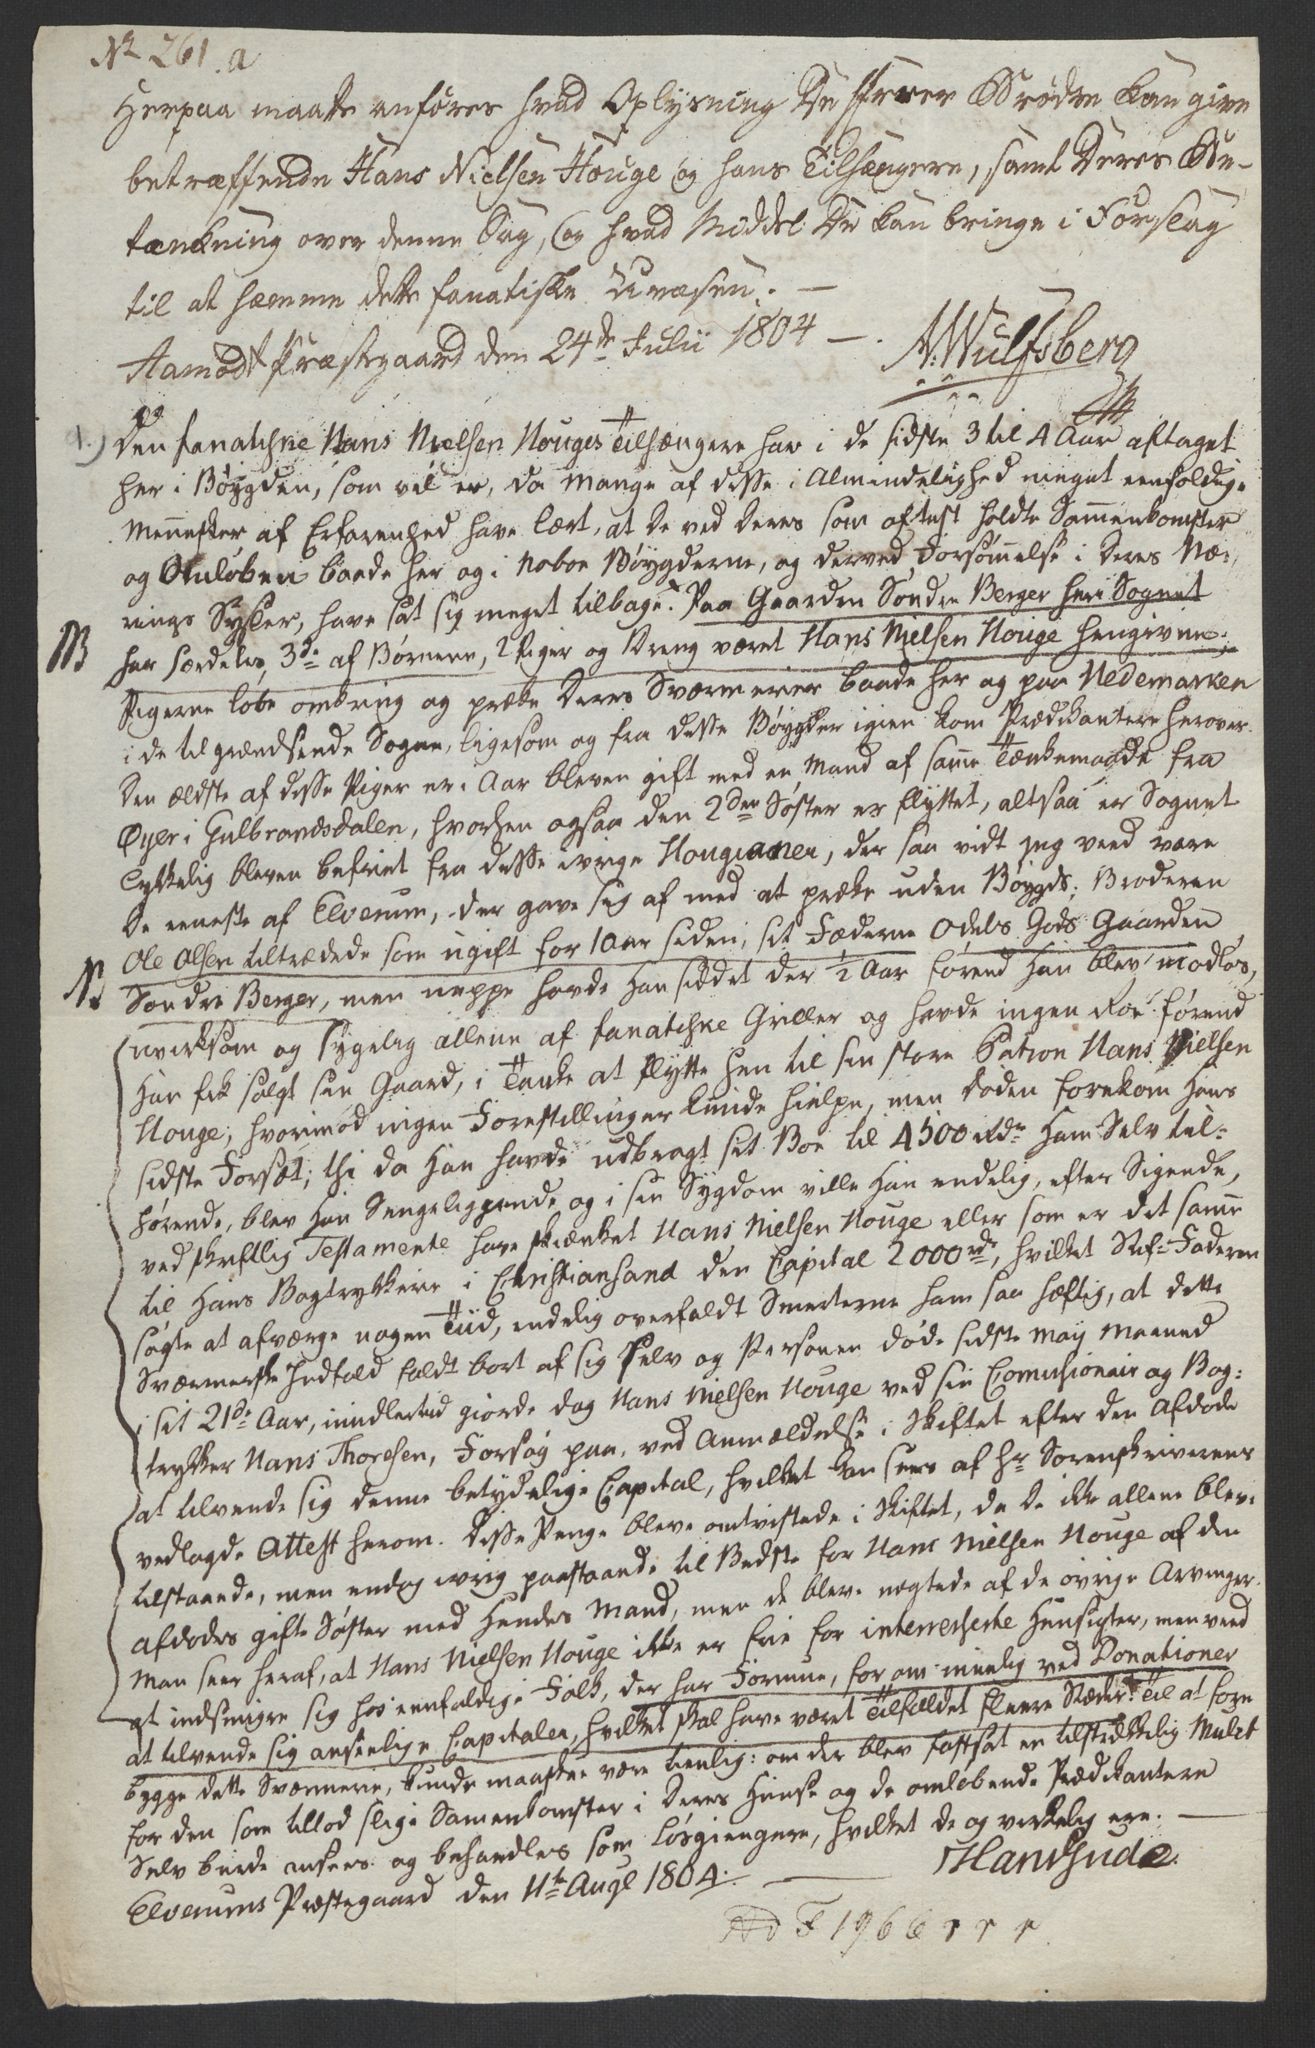 No 261.a
Herpaa maatte anføres hvad Oplysning De Herrer Brødre kan give
betræffende Hans Nielsen Houge og hans Tilhængere, samt Deres Be-
tænkning over denne Sag, og hvad Middel De kan bringe i Forslag
til at hæmme dette fanatiske Uvæsen. —
Aamodt Præstegaard den 24de Julii 1804 —. A. Wulfsberg
1.) Den fanatiske Hans Nielsen Houges Tilhængere har i de sidste 3 til 4 Aar aftaget
her i Bøygden, som vel er, da mange af disse i Almindelighed meget eenfoldige
Mennesker af Erfarenhed have lært, at de ved deres som oftest holdte Sammenkomster
og Omløben baade her og i Naboe Bøygderne, og derved Forsømmelse i deres Næ-
rings Sysler, have sat sig meget tilbage. Paa Gaarden Søndre Berger her i Sognet
NB har særdeles 3de af Børnene, 2 Piger og 1 Dreng været Hans Nielsen Houge hengivne;
Pigerne løbe omkring og præke deres Sværmerier baade her og paa Hedemarken
i de tilgrændsende Sogne, ligesom og fra disse Bøygder igien kom Prædikantere herover.
Den ældste af disse Piger er i Aar bleven gift med en Mand af samme Tænkemaade fra
Øyer i Gulbrandsdalen, hvorhen ogsaa den 2den Søster er flyttet, altsaa er Sognet
lykkelig bleven befriet fra disse ivrige Hougianer, der saa vidt jeg veed vare
de eeneste af Elverum, der gave sig af med at præke uden Bøygds; Broderen
Ole Olsen tiltrædede som ugift for 1 Aar siden, sit Fæderne Odels Gods Gaarden
NB Søndre Berger, men neppe havde han siddet der ½ Aar førend han blev modløs,
uvirksom og sygelig allene af fanatiske Griller og havde ingen Roe førend
han fik solgt sin Gaard, i Tanke at flytte hen til sin store Patron Hans Nielsen
Houge, hvorimod ingen Forestillinger kunde hielpe, men Døden forekom hans
sidste Forsæt; thi da han havde udbragt sit Boe til 4300 rdr ham Selv til-
hørende, blev han Sengeliggende og i sin Sygdom ville han endelig, efter Sigende,
ved skriftlig Testamente have skienket Hans Nielsen Houge eller som er det samme
til hans Bogtrykkerie i Christiansand den Capital 2000 rdr, hvilket Stif-Faderen
søgte at afværge nogen Tiid, endelig overfaldt Smerterne ham saa hæftig, at dette
Sværmerske Indfald faldt bort af sig selv og Personen døde sidste May Maaned
i sit 21de Aar, imidlertid giorde dog Hans Nielsen Houge ved sin Comissionair og Bog-
trykker Hans Thoresen, Forsøg paa, ved Anmældelse i Skiftet efter den afdøde
at tilvende sig denne betydelige Capital, hvilket kan sees af Hr Sorenskriverens
vedlagde Attest herom. Disse Penge bleve omtvistede i Skiftet, da de ikke allene bleve
tilstaaede, men endog ivrig paastaaede til Bedste for Hans Nielsen Houge af den
afdødes gifte Søster med hendes Mand, men de bleve nægtede af de øvrige Arvinger.
Man seer heraf, at Hans Nielsen Houge ikke er frie for interesserte Hensigter, men veed
at indsmigre sig hos eenfoldige Folk, der har Formue, for om muelig ved Donationer
at tilvende sig anseelige Capitaler, hvilket skal have været Tilfældet fleere Stæder. Til at fore-
bygge dette Sværmerie, kunde maaskee være tienlig: om der blev fastsat en tilstrekkelig Mulct
for den som tillod slige Samenkomster i deres Huuse og de omløbende Prædikantere
Selv burde ansees og behandles som Løsgiengere, hvilket de og virkelig ere. —
Elverums Præstegaard den 11te Augl 1804. — HandSude.
Ad F 1966